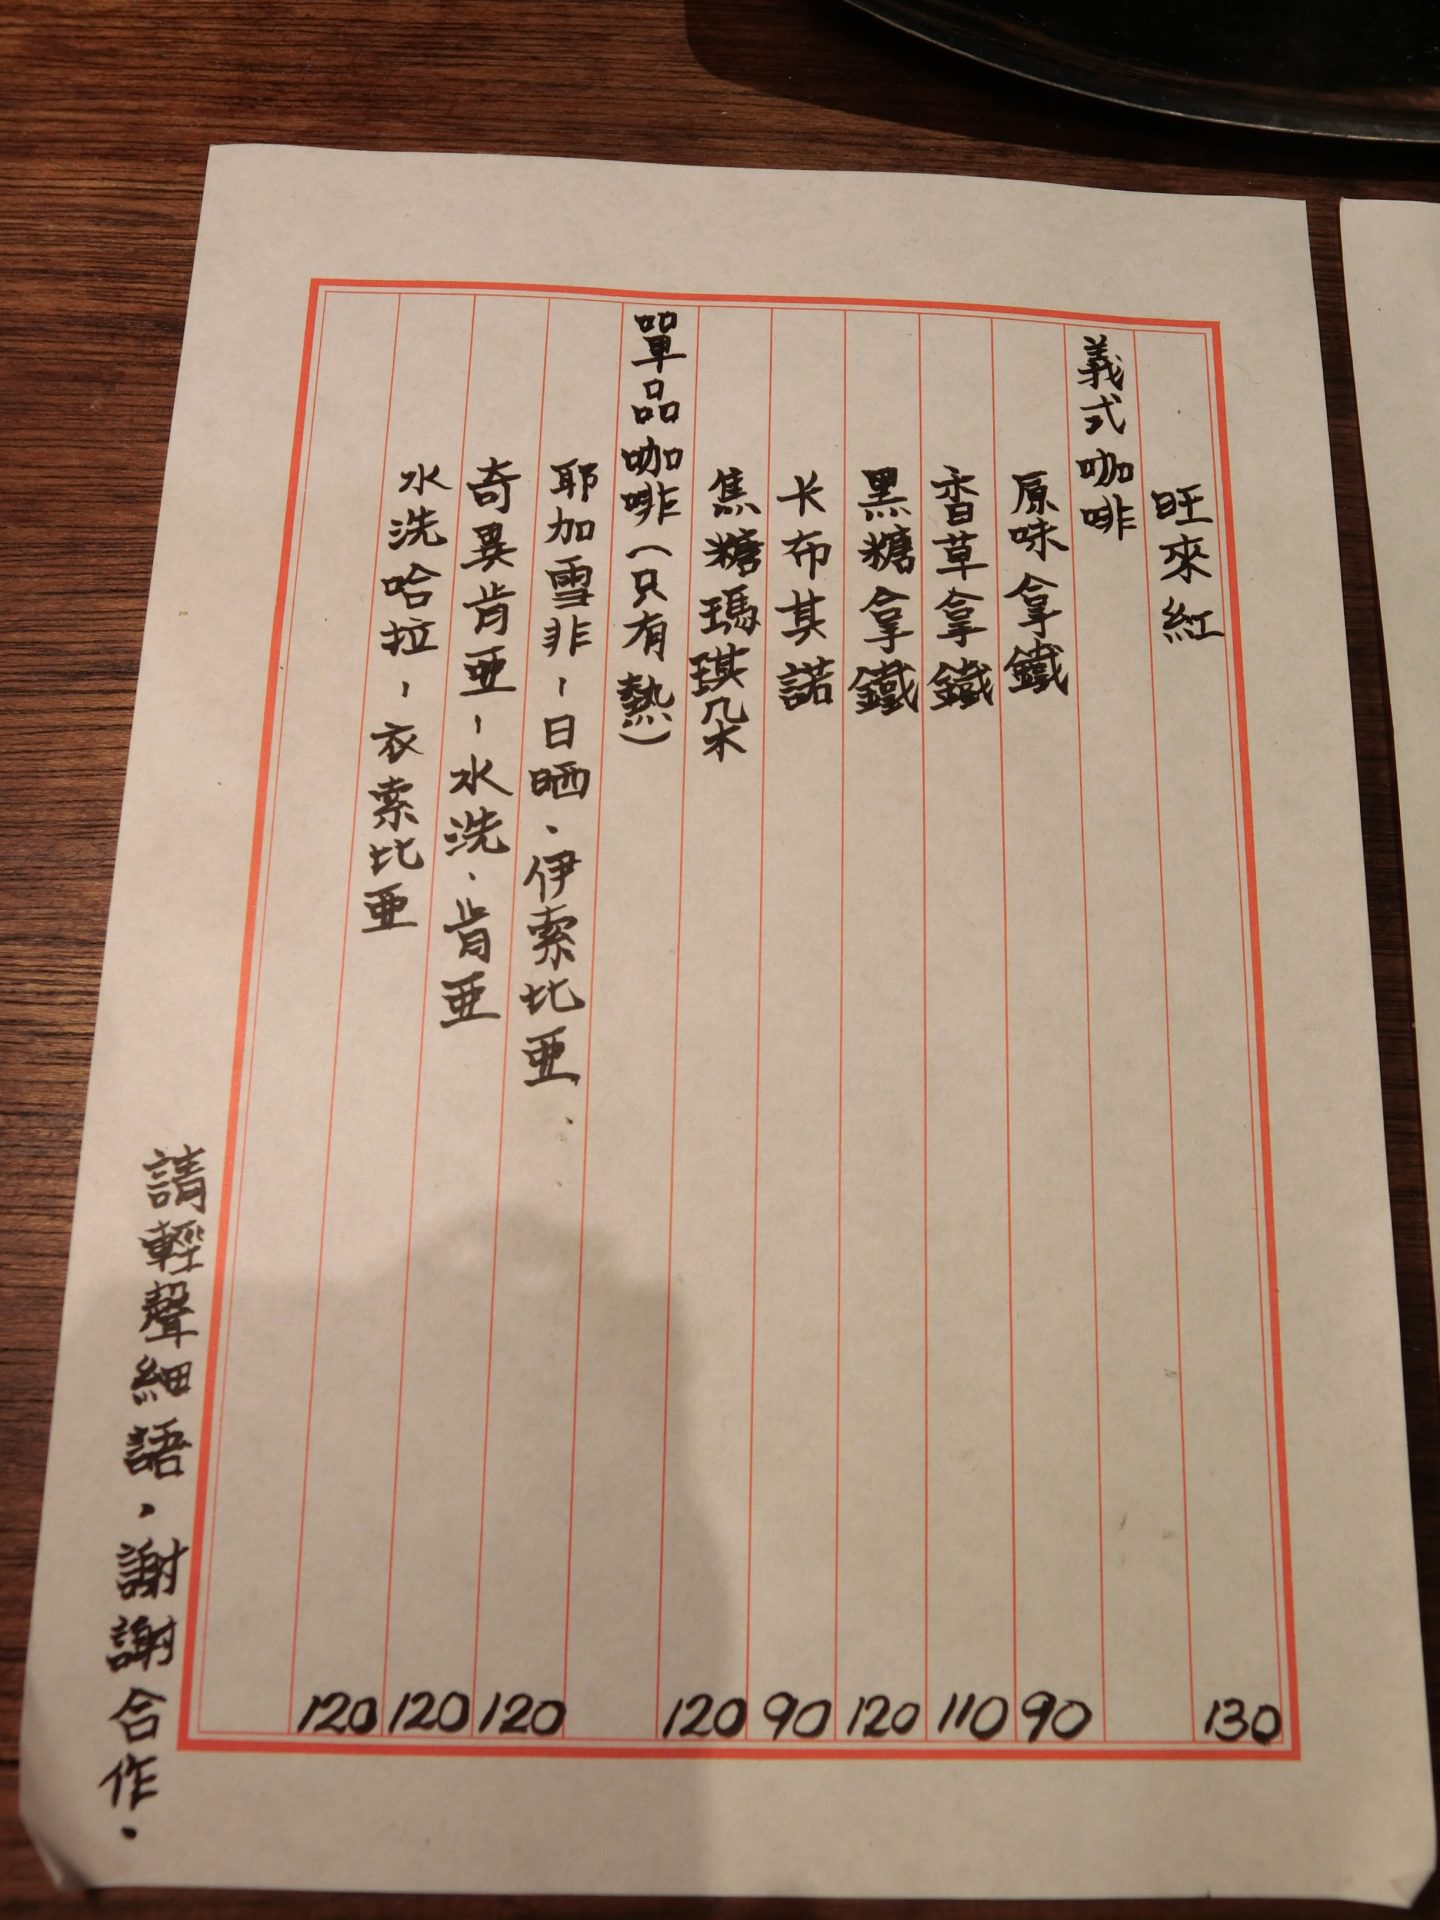 旺來紅 130
義式咖啡
原味拿鐵 90
香草拿鐵 110
黑糖拿鐵 120
卡布其諾 90
焦糖瑪琪朵 120
單品咖啡（只有熱）
耶加雪非－日晒、伊索比亜 120
奇異肯亜－水洗、肯亜 120
水洗哈拉、衣索比亜 120
請輕聲細語，謝謝合作．